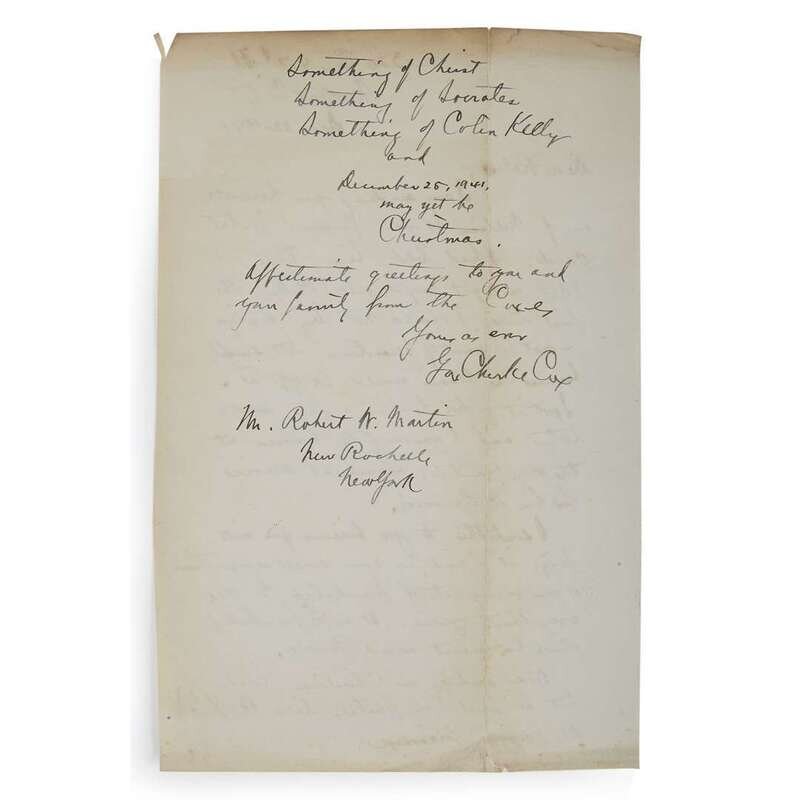 Something of Christ
Something of Socrates
Something of Colin Kelly
and
December 25, 1941,
may yet be
Christmas.
Affectionate greetings to you and
your family from the Coxes
Yours as ever
Geo Clarke Cox
Mr. Robert W. Martin
New Rochelle
New York